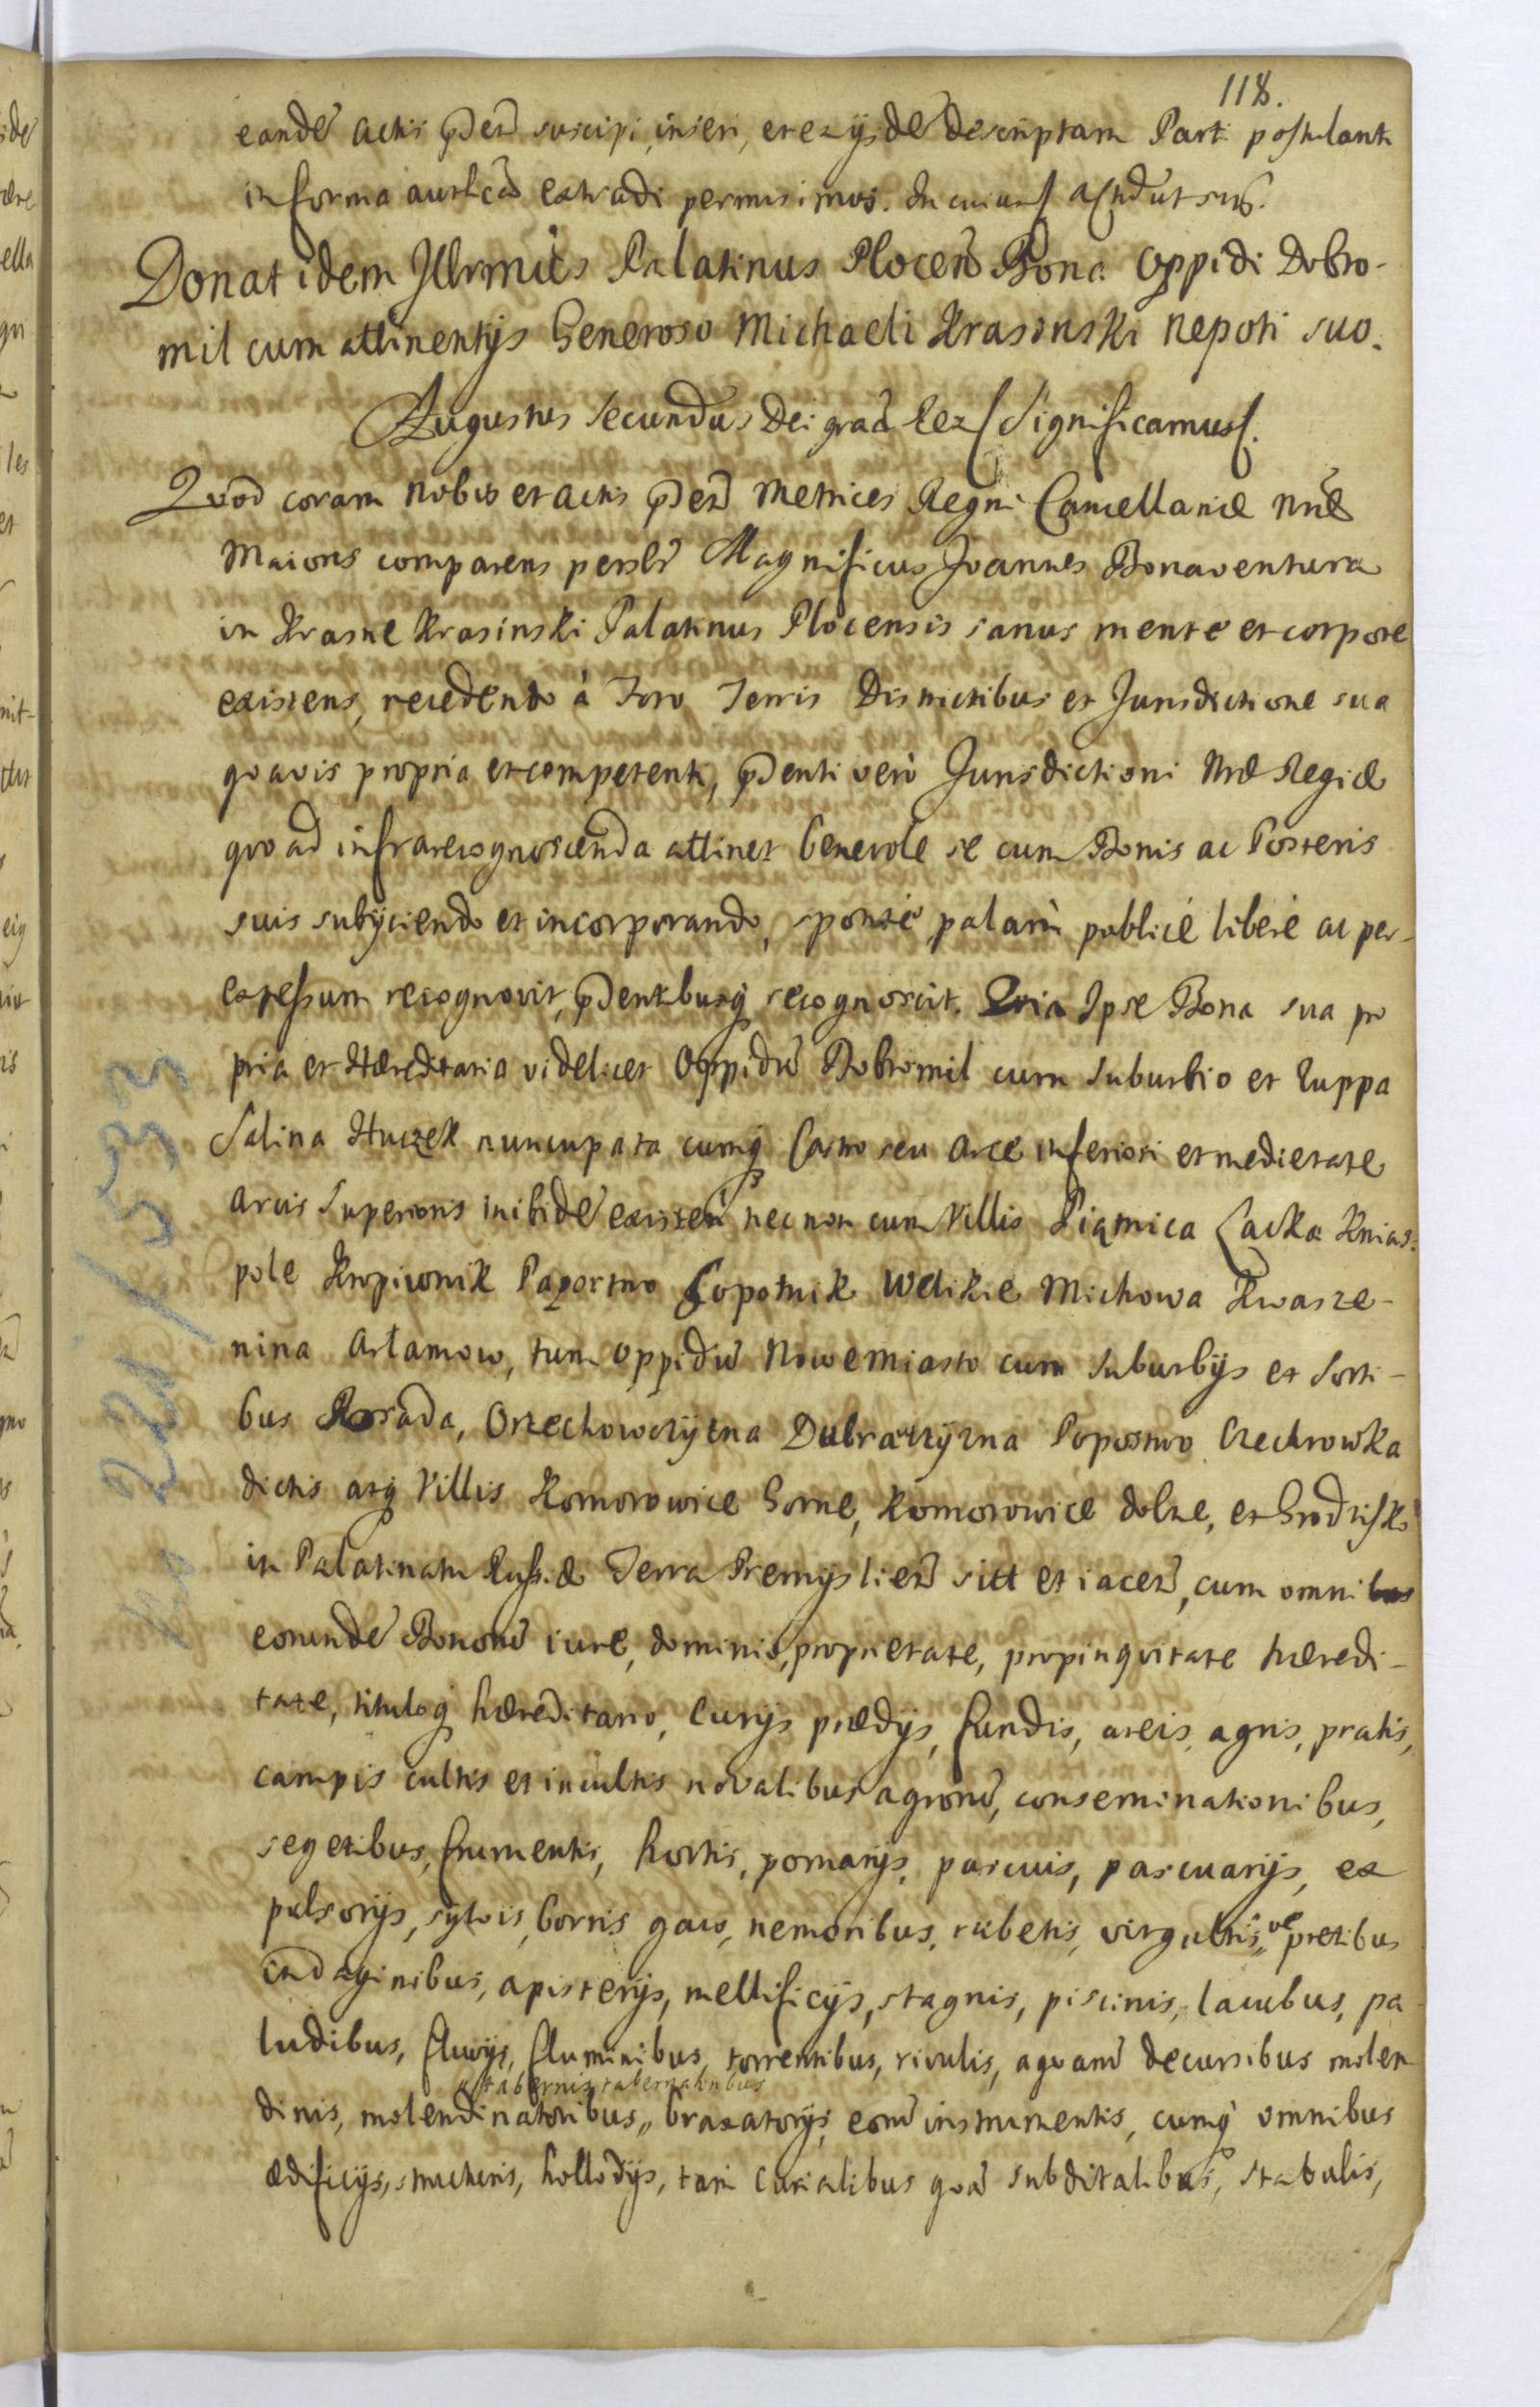 118.
eandē actis p̄ēn suscipi, inseri, et ex ijsdē descriptam Parti postulanti
in forma autħcā extradi permisimus. In cuius
Donat idem Illrmūs Palatinus Plocen̄ Bona Oppidi Dobro-
mil cum attinentijs Generoso Michaeli Krasinski Nepoti suo.
Augustus Secundus Dei gr̄ā Rex Significamus.
Quod coram nobis et actis p̄ēn Metrices Regni Cancellariæ Nr̄æ
Maioris comparens perslr̄ Magnificus Joannes Bonaventura
in Krasne Krasinski Palatinus Plocensis sanus mente et corpore
existens, recedendo à Foro Terris Districtibus et Jurisdictione sua
quavis propria et competenti, p̄nti verò Jurisdictioni Nr̄æ Regiæ
quo ad infrarecognoscenda attinet benevole se cum Bonis ac Posteris
suis subijciendo et incorporando, sponte palam publicè liberè ac per
expressum recognovit, p̄ntibusq; recognoscit. Quia Ipse Bona sua pro
pria et Hæreditaria videlicet Oppidū Dobromil cum Suburbio et Zuppa
Salina Huczek nuncupata cumq; Castro seu Arce inferiori et medietate
Arcis Superioris inibidē existen̄ nec non cum Villis Piątnica Lacka Knias-
pole Kropiwnik Paportno Łopotnik Welikie Michowa Kwasze-
nina Arłamow, tum Oppidū Nowemiasto cum Suburbijs et Sorti-
bus Posada, Orzechowczyzna Dubrawczyzna Popostwo Czechowka
dictis atq; Villis Komorowice Gorne, Komorowice dolne, et Grodzisko
in Palatinatu Russiæ Terra Premyslien̄ sitt et iacen̄, cum omnibus
eorundē Bonorū iure, dominio, proprietate, propinquitate hæredi-
tate, tituloq; hæreditario, Curijs prædijs, fundis, areis, agris, pratis,
campis cultis et incultis novalibus agrorū, conseminationibus,
segetibus, frumentis, hortis, pomarijs, pascuis, pascuarijs, ex
pulsorijs, sylvis, borris gais, nemoribus, rubetis, virgultis, ve pretibus
indaginibus, apisterijs, mellificijs, stagnis, piscinis, lacubus, pa
ludibus, fluvijs, fluminibus, torrentibus, rivulis, aquarū decursibus molen
〃tabernis, tabernatoribus
dinis, molendinatoribus,〃 braxatorijs, eorū instrumentis, cumq; omnibus
ædificijs, structuris, hollodijs, tam Curialibus quā subditalibus, stabulis,